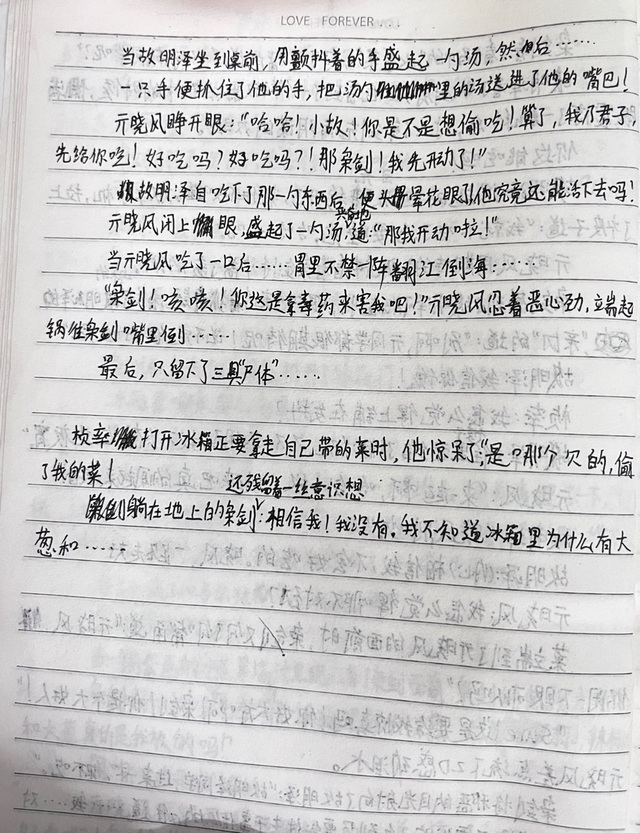 LOVE FOREVER...
当故明泽坐到桌前，用颤抖着的手盛起一勺汤，然后……
一只手便抓住了他的手，把汤勺里的汤送进了他的嘴巴！
亓晓风睁开眼："哈哈！小故！你是不是想偷吃！算了，我乃君子，
先给你吃！好吃吗？好吃吗？！那枲剑！我先开动了！"
故明泽自吃下了那一勺东西后，便头晕花眼了！他究竟还能活下去吗！
亓晓风闭上眼，盛起了一勺汤，道："那我开动啦！"
当亓晓风吃了一口后……胃里不禁一阵翻江倒海……
"枲剑！咳咳！你这是拿毒药来害我吧！"亓晓风忍着恶心劲，端起
锅往枲剑嘴里倒……
最后，只留下了三具"尸体"……
桢率打开冰箱正要拿走自己带的菜时，他惊呆了，"是那个欠的，偷
了我的菜！
还残留着一丝意识想
躺在地上的枲剑：相信我！我没有。我不知道冰箱里为什么有大
葱和……